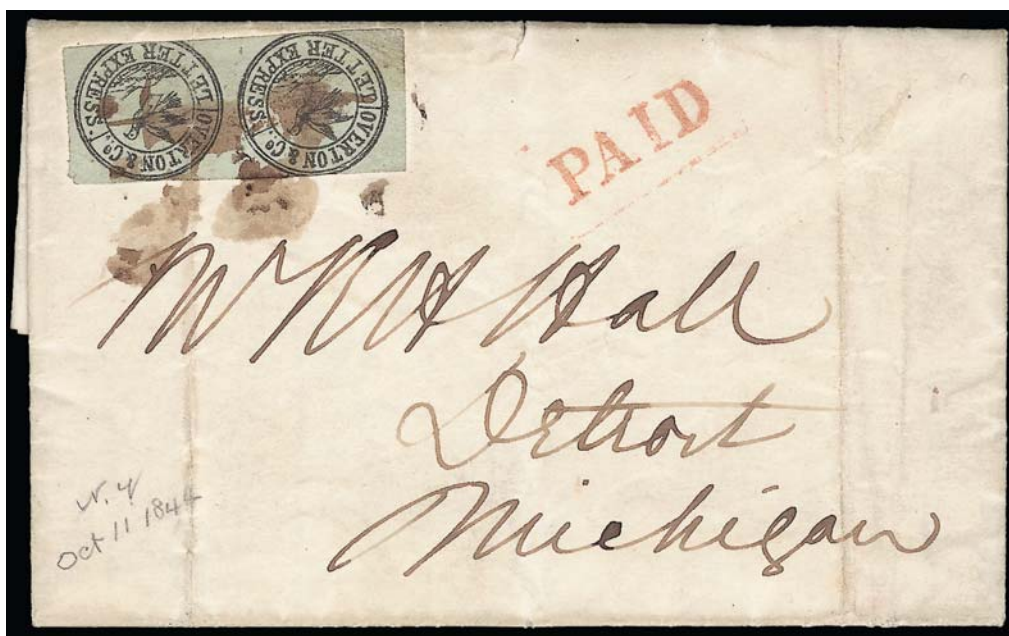 OVERTON & Co.
LETTER EXPRESS.
OVERTON & Co.
LETTER EXPRESS.
PAID
Mr R H Hall
Detroit
Michigan
N. Y
Oct 11 1844